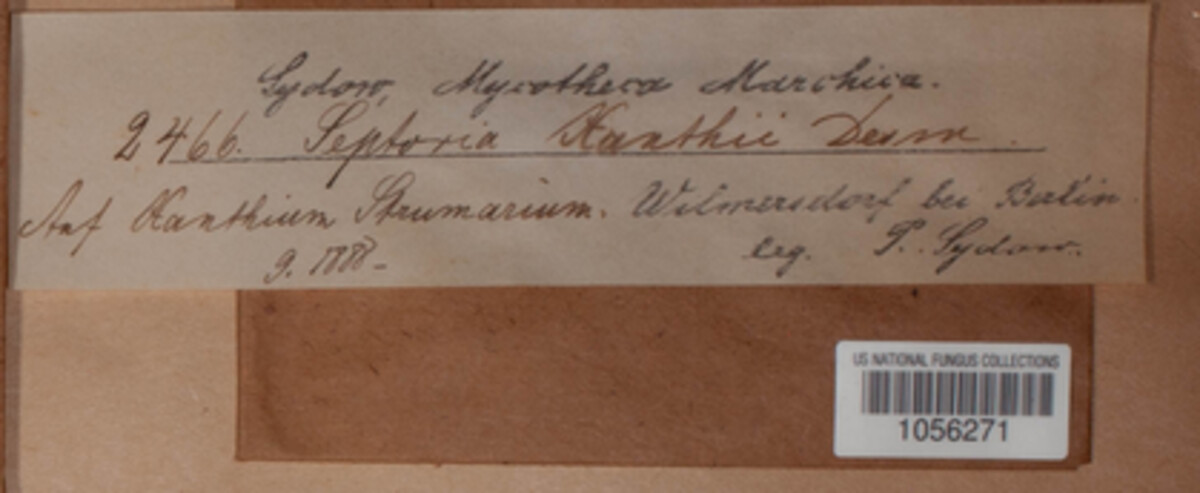 Sydow, Mycotheca Marchica.
2466. Septoria Xanthii Desm.
Auf Xanthium Strumarium. Wilmersdorf bei Berlin.
9. 1888 - leg. P. Sydow.
US NATIONAL FUNGUS COLLECTIONS
1056271